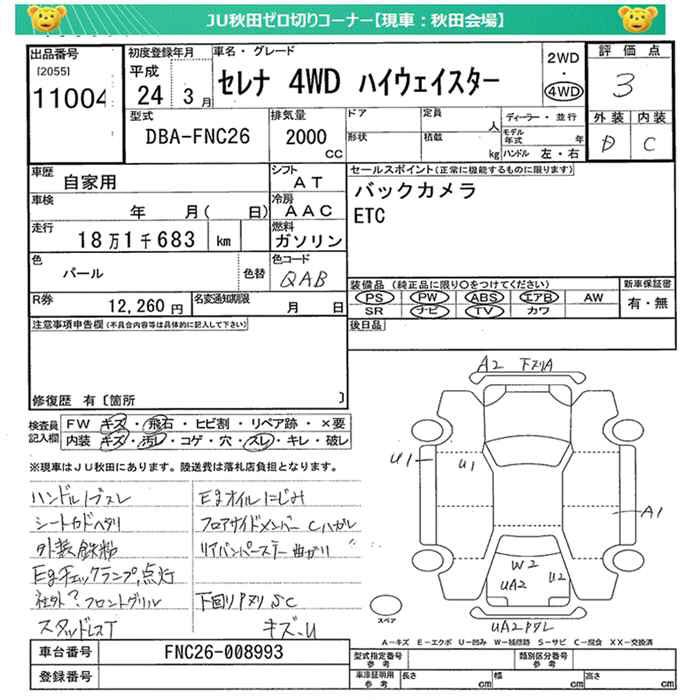 JU秋田ゼロ切りコーナー【現車：秋田会場】
出品番号
[2055]
11004
初度登録年月
平成
24 3月
車名・グレード
セレナ 4WD ハイウェイスター
2WD
・
4WD
評価点
3
外装 内装
D C
型式
DBA-FNC26
排気量
2000
CC
ドア
形状
定員
人
積載
kg
ディーラー・並行
モデル年式 年
ハンドル 左・右
車歴
自家用
シフト
AT
車検
年 月( 日)
冷房
AAC
走行
18万1千683 km
燃料
ガソリン
色
パール
色替
色コード
QAB
R券
12,260円
名変通知期限
月 日
セールスポイント(正常に機能するものに限ります)
バックカメラ
ETC
装備品(純正品に限り○をつけてください)
PS PW ABS エアB AW
SR ナビ TV カワ
新車保証書
有・無
後日品
注意事項申告欄(不具合内容等は具体的に記入して下さい)
修復歴 有〔箇所 〕
検査員
記入欄
FW キズ・飛石・ヒビ割・リペア跡・×要
内装 キズ・汚レ・コゲ・穴・スレ・キレ・破レ
※現車はJU秋田にあります。陸送費は落札店負担となります。
ハンドルノブスレ
シートカドヘタリ
外装鉄粉
Egチェックランプ点灯
社外? フロントグリル
スタッドレスT
Egオイルにじみ
フロアサイドメンバー Cハガレ
リヤバンパーステー曲がり
下回りPヌリSC
キズ-U
A2 下ヌリA
U1
U1
A1
W2
UA2
U2
UA2 Pタレ
スペア
A－キズ E－エクボ U－凹み W－補修跡 S－サビ C－腐食 XX－交換済
車台番号
FNC26-008993
登録番号
型式指定番号
参考
類別区分番号
参考
車庫証明用
参考
長さ cm
幅 cm
高さ cm